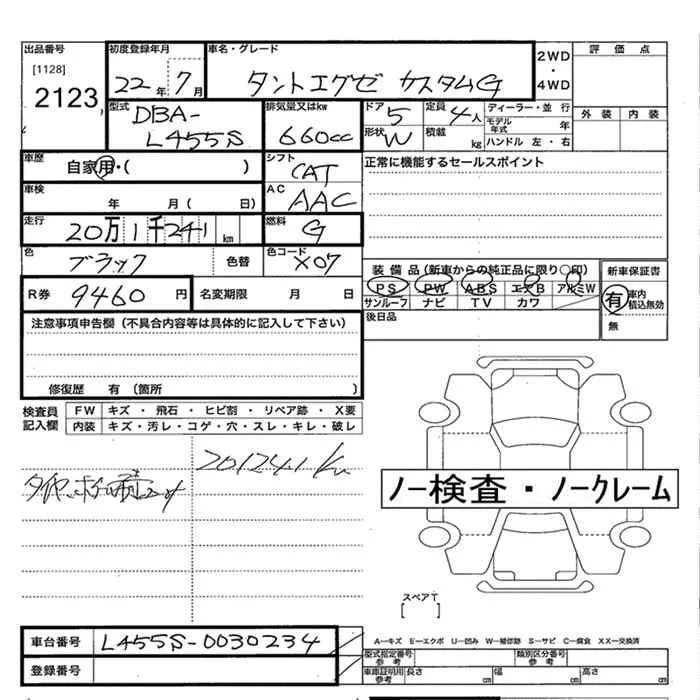 出品番号 初度登録年月 車名・グレード 2WD・4WD 評価点
[1128]
2123 22年 7月 タントエグゼ カスタムG
型式 排気量又はkw ドア 5 定員 4人 ディーラー・並行 外装 内装
DBA- モデル年式 年
L455S 660cc 形状 W 積載 kg ハンドル 左・右
車歴 自家用・( ) シフト CAT 正常に機能するセールスポイント
車検 年 月( 日) AC AAC
走行 20万1千241km 燃料 G
色 ブラック 色替 色コード X07
装備品(新車からの純正品に限り○印) 新車保証書
PS PW ABS エアB アルミW
サンルーフ ナビ TV カワ
有 車内積込無効
無
R券 9460円 名変期限 月 日
後日品
注意事項申告欄(不具合内容等は具体的に記入して下さい)
修復歴 有(箇所 )
検査員記入欄 FW キズ・飛石・ヒビ割・リペア跡・X要
内装 キズ・汚レ・コゲ・穴・スレ・キレ・破レ
201241km
ノー検査・ノークレーム
スペアT
[ ]
車台番号 L455S-0030234
登録番号
A−キズ E−エクボ U−凹み W−補修跡 S−サビ C−腐食 XX−交換済
型式指定番号参考 類別区分番号参考
車庫証明用参考 長さ cm 幅 cm 高さ cm